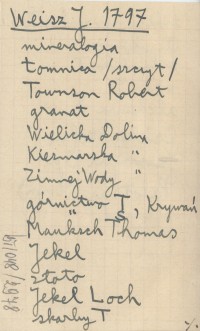 Weisz J. 1797
mineralogia
Łomnica /szczyt/
Townson Robert
granat
Wielicka Dolina
Kiezmarska "
Zimnej Wody "
górnictwo T, Krywań
" S
Mauksch Thomas
Jekel
złoto
Jekel Loch
skarby T